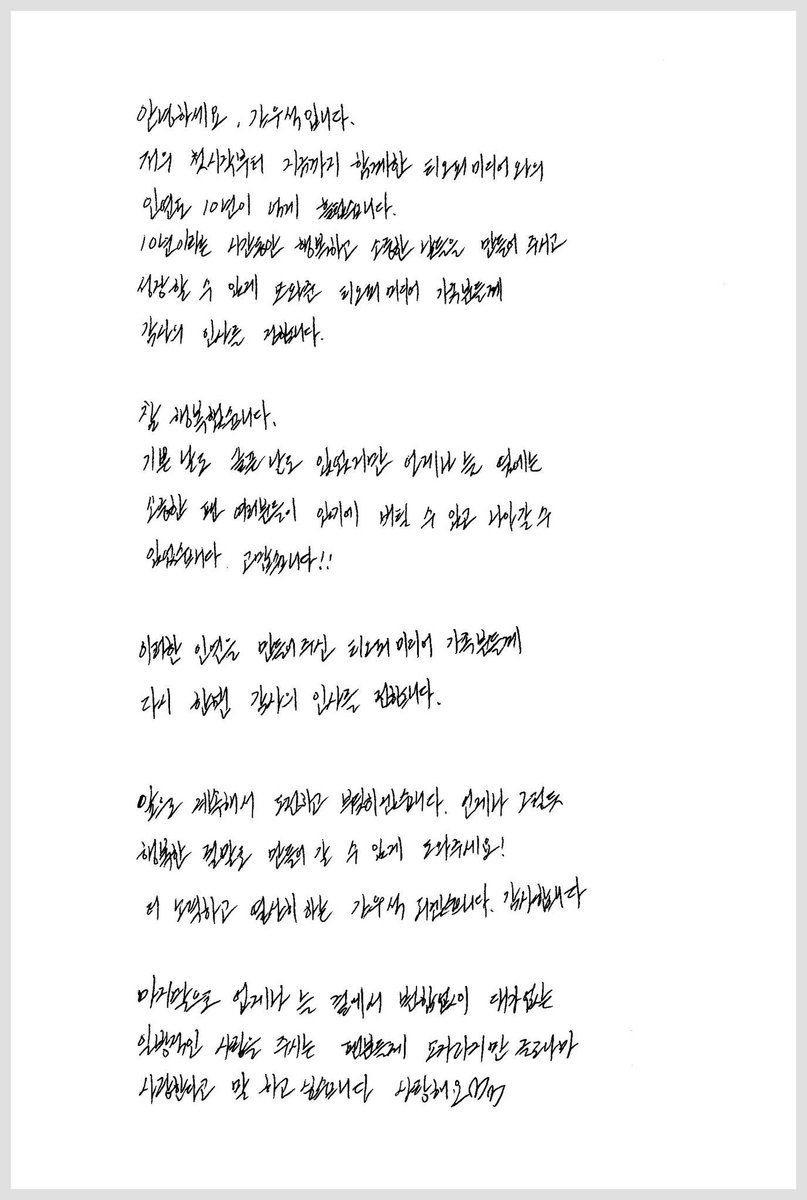 안녕하세요, 김우석입니다.
저의 첫시작부터 지금까지 함께한 티오피미디어와의
인연도 10년이 넘게 흘렀습니다.
10년이라는 시간동안 행복하고 소중한 날들을 만들어 주시고
성장할 수 있게 도와준 티오피미디어 가족분들께
감사의 인사를 전합니다.
참 행복했습니다.
기쁜 날도 슬픈 날도 있었지만 언제나 늘 옆에는
소중한 팬 여러분들이 있기에 버틸 수 있고 나아갈 수
있었습니다. 고맙습니다!!
이러한 인연을 만들어주신 티오피미디어 가족분들께
다시 한번 감사의 인사를 전합니다.
앞으로 계속해서 도전하고 부딪히겠습니다. 언제나 그렇듯
행복한 결말로 만들어 갈 수 있게 도와주세요!
더 노력하고 열심히 하는 김우석 되겠습니다. 감사합니다
마지막으로 언제나 늘 곁에서 변함없이 대가없는
일방적인 사랑을 주시는 팬분들께 모자라지만 조금이나마
사랑한다고 말 하고 싶습니다 사랑해요